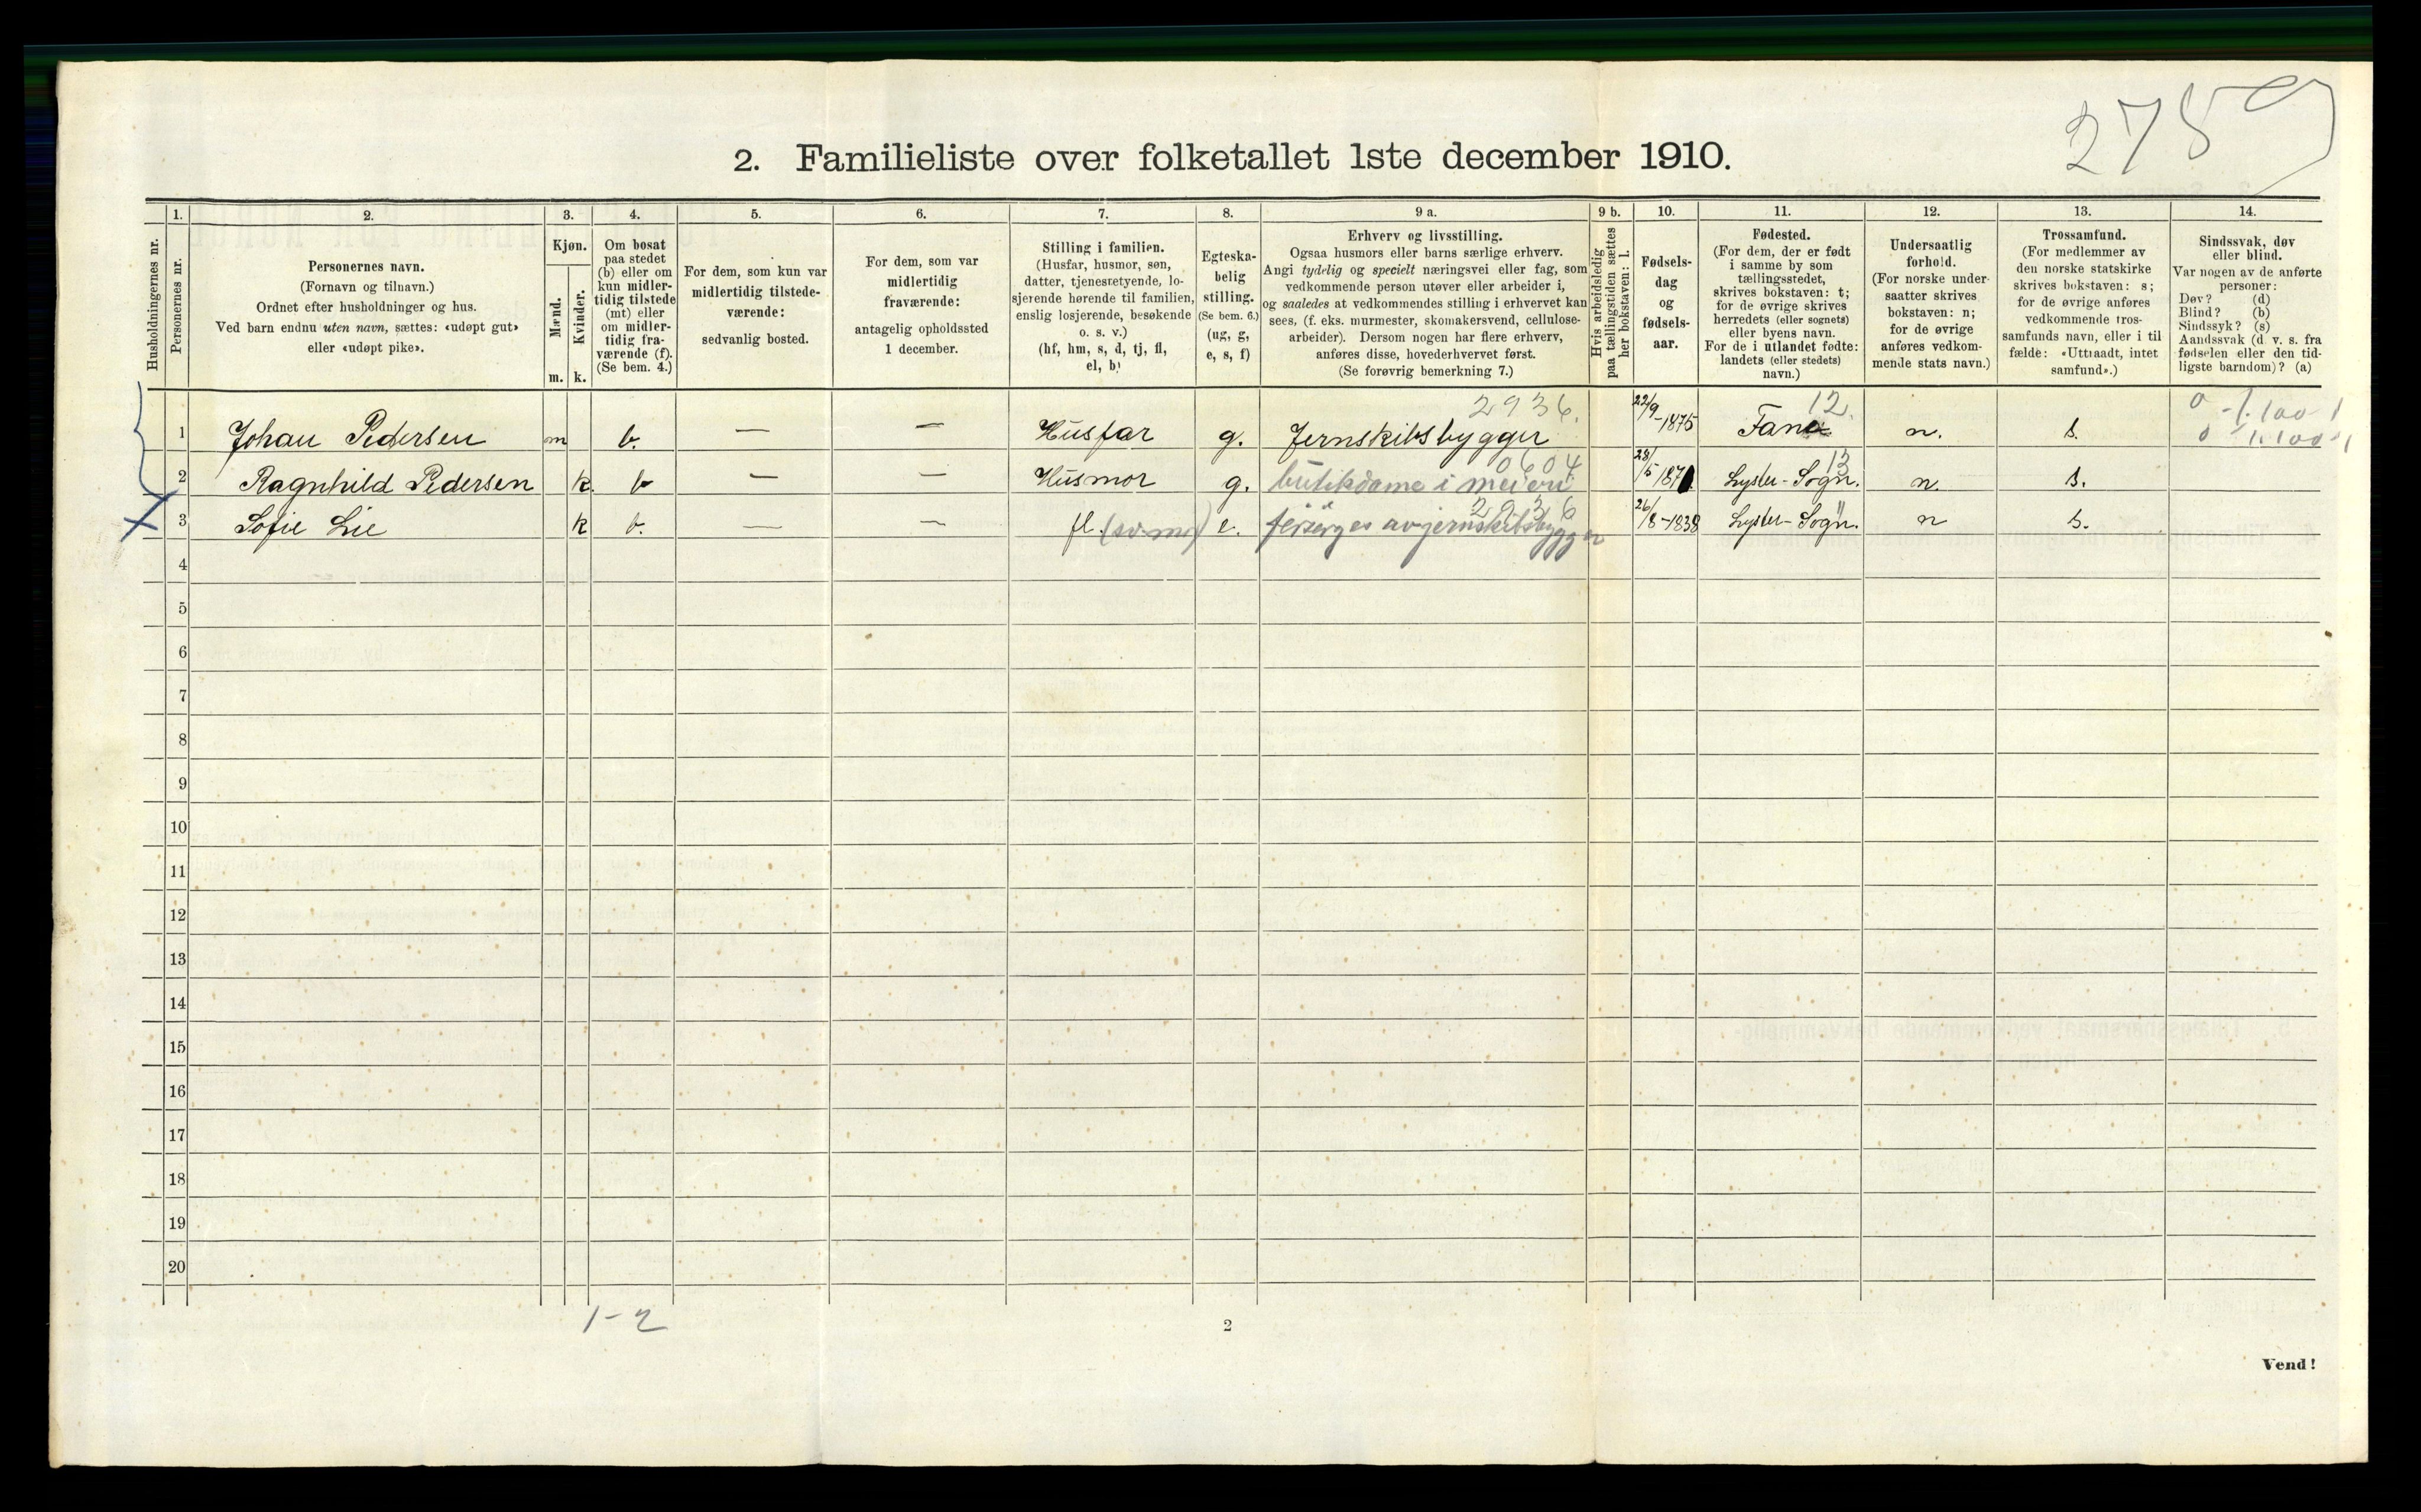 2759
2. Familieliste over folketallet 1ste december 1910.
Husholdningernes nr.
1.
Personernes nr.
2.
Personernes navn.
(Fornavn og tilnavn.)
Ordnet efter husholdninger og hus.
Ved barn endnu uten navn, sættes: «udøpt gut»
eller «udøpt pike».
3.
Kjøn.
Mænd.
Kvinder.
m. k.
4.
Om bosat
paa stedet
(b) eller om
kun midler-
tidig tilstede
(mt) eller
om midler-
tidig fra-
værende (f).
(Se bem. 4.)
5.
For dem, som kun var
midlertidig tilstede-
værende:
sedvanlig bosted.
6.
For dem, som var
midlertidig
fraværende:
antagelig opholdssted
1 december.
7.
Stilling i familien.
(Husfar, husmor, søn,
datter, tjenestetyende, lo-
sjerende hørende til familien,
enslig losjerende, besøkende
o. s. v.)
(hf, hm, s, d, tj, fl,
el, b)
8.
Egteska-
belig
stilling.
(Se bem. 6.)
(ug, g,
e, s, f)
9 a.
Erhverv og livsstilling.
Ogsaa husmors eller barns særlige erhverv.
Angi tydelig og specielt næringsvei eller fag, som
vedkommende person utøver eller arbeider i,
og saaledes at vedkommendes stilling i erhvervet kan
sees, (f. eks. murmester, skomakersvend, cellulose-
arbeider). Dersom nogen har flere erhverv,
anføres disse, hovederhvervet først.
(Se forøvrig bemerkning 7.)
9 b.
Hvis arbeidsledig
paa tællingstiden sættes
her bokstaven: l.
10.
Fødsels-
dag
og
fødsels-
aar.
11.
Fødested.
(For dem, der er født
i samme by som
tællingsstedet,
skrives bokstaven: t;
for de øvrige skrives
herredets (eller sognets)
eller byens navn.
For de i utlandet fødte:
landets (eller stedets)
navn.)
12.
Undersaatlig
forhold.
(For norske under-
saatter skrives
bokstaven: n;
for de øvrige
anføres vedkom-
mende stats navn.)
13.
Trossamfund.
(For medlemmer av
den norske statskirke
skrives bokstaven: s;
for de øvrige anføres
vedkommende tros-
samfunds navn, eller i til
fælde: «Uttraadt, intet
samfund».)
14.
Sindssvak, døv
eller blind.
Var nogen av de anførte
personer:
Døv? (d)
Blind? (b)
Sindssyk? (s)
Aandssvak (d. v. s. fra
fødselen eller den tid-
ligste barndom)? (a)
2936. 12.
1 Johan Pedersen m b. — — Husfar g. Jernskibsbygger 22/9-1875 Fana n. s.
0604 13
2 Ragnhild Pedersen k. b — — Husmor g. butikdame i meieri 28/5 1871 Lyster-Sogn. n. s.
2936 "
3 Sofie Lie k b. — — fl. (sv.mor) e. forsørges av jernskibsbygger 26/8-1838 Lyster-Sogn. n s.
4
5
6
7
8
9
10
11
12
13
14
15
16
17
18
19
20
1-2
2
Vend!